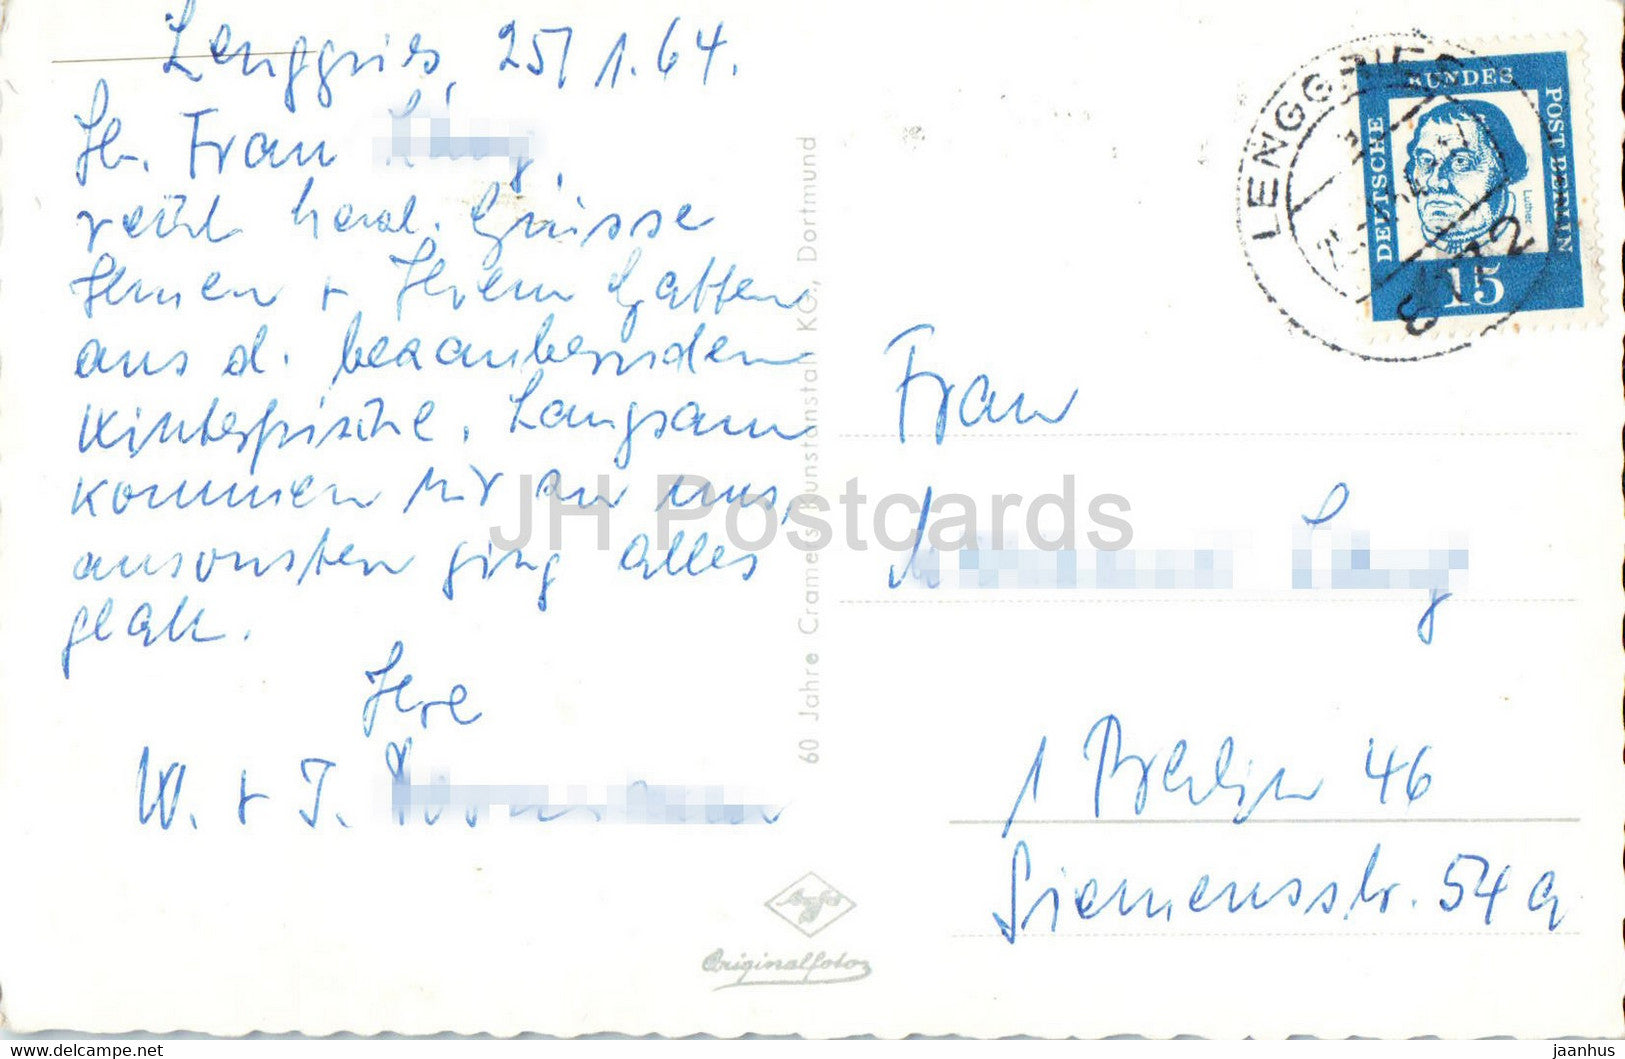 Lenggries, 25/1.64.
Frau
recht herzl. Grüsse
Ihnen + Ihrem Gatten
aus d. bezaubernden
Winterfrische. Langsam
kommen wir zu uns,
ansonsten ging alles
glatt.
Ihre
W. + I.
60 Jahre Cramers Kunstanstalt KG., Dortmund
Agfa
Originalfoto
LENGGRIES
8172
DEUTSCHE BUNDESPOST BERLIN
Luther
15
Frau
1 Berlin 46
Siemensstr. 54 a
JH Postcards
www.delcampe.net
jaanhus